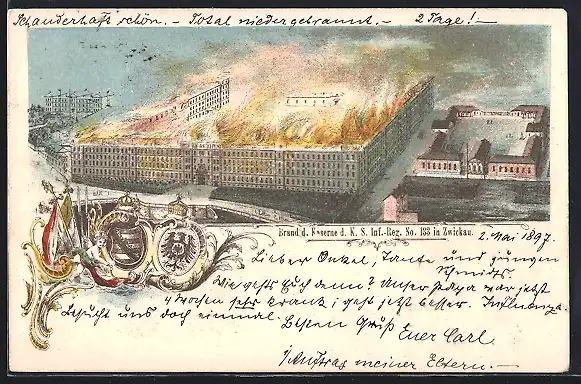 Schauderhaft schön. - Total niedergebrannt. - 2 Tage! -
Brand d. Kaserne d. K. S. Inf.-Reg. No. 133 in Zwickau.
2. Mai 1897.
Lieber Onkel, Tante und jungen
Schmidts.
Wie gehts Euch denn? Unser Papa war jetzt
4 Wochen sehr krank, geht jetzt besser. Influenza.
Besucht uns doch einmal. Besten Gruß
Euer Carl.
i/Auftrag meiner Eltern. -